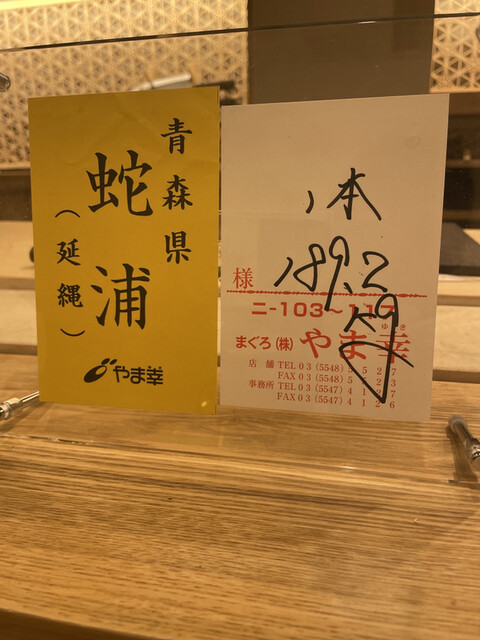 青森県
蛇浦
(延縄)
やま幸
1本
189.2
kg
様
ニ-103~1
まぐろ(株)やま幸
ゆき
店舗 TEL 03 (5548) 5 2 7
FAX 03 (5548) 5 2 3
事務所 TEL 03 (5547) 4 1 7
FAX 03 (5547) 4 1 2 6